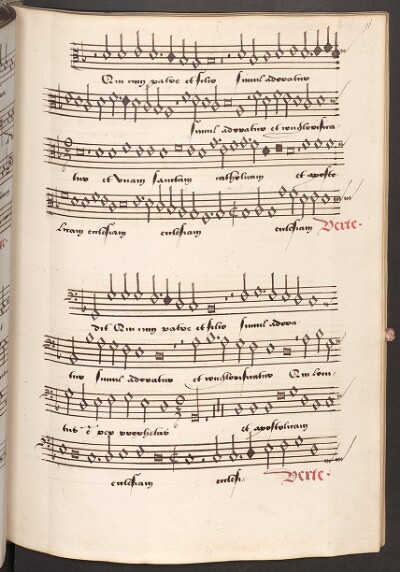 Qui cum patre et filio simul adoratur
simul adoratur et conglorifica-
tur et vnam sanctam catholicam et aposto-
licam ecclesiam ecclesiam ecclesiam Verte.
dit Qui cum patre et filio simul adora-
tur simul adoratur et conglorificatur Qui locu-
tus e per prophetas et apostolicam
ecclesiam ecclesi- Verte.